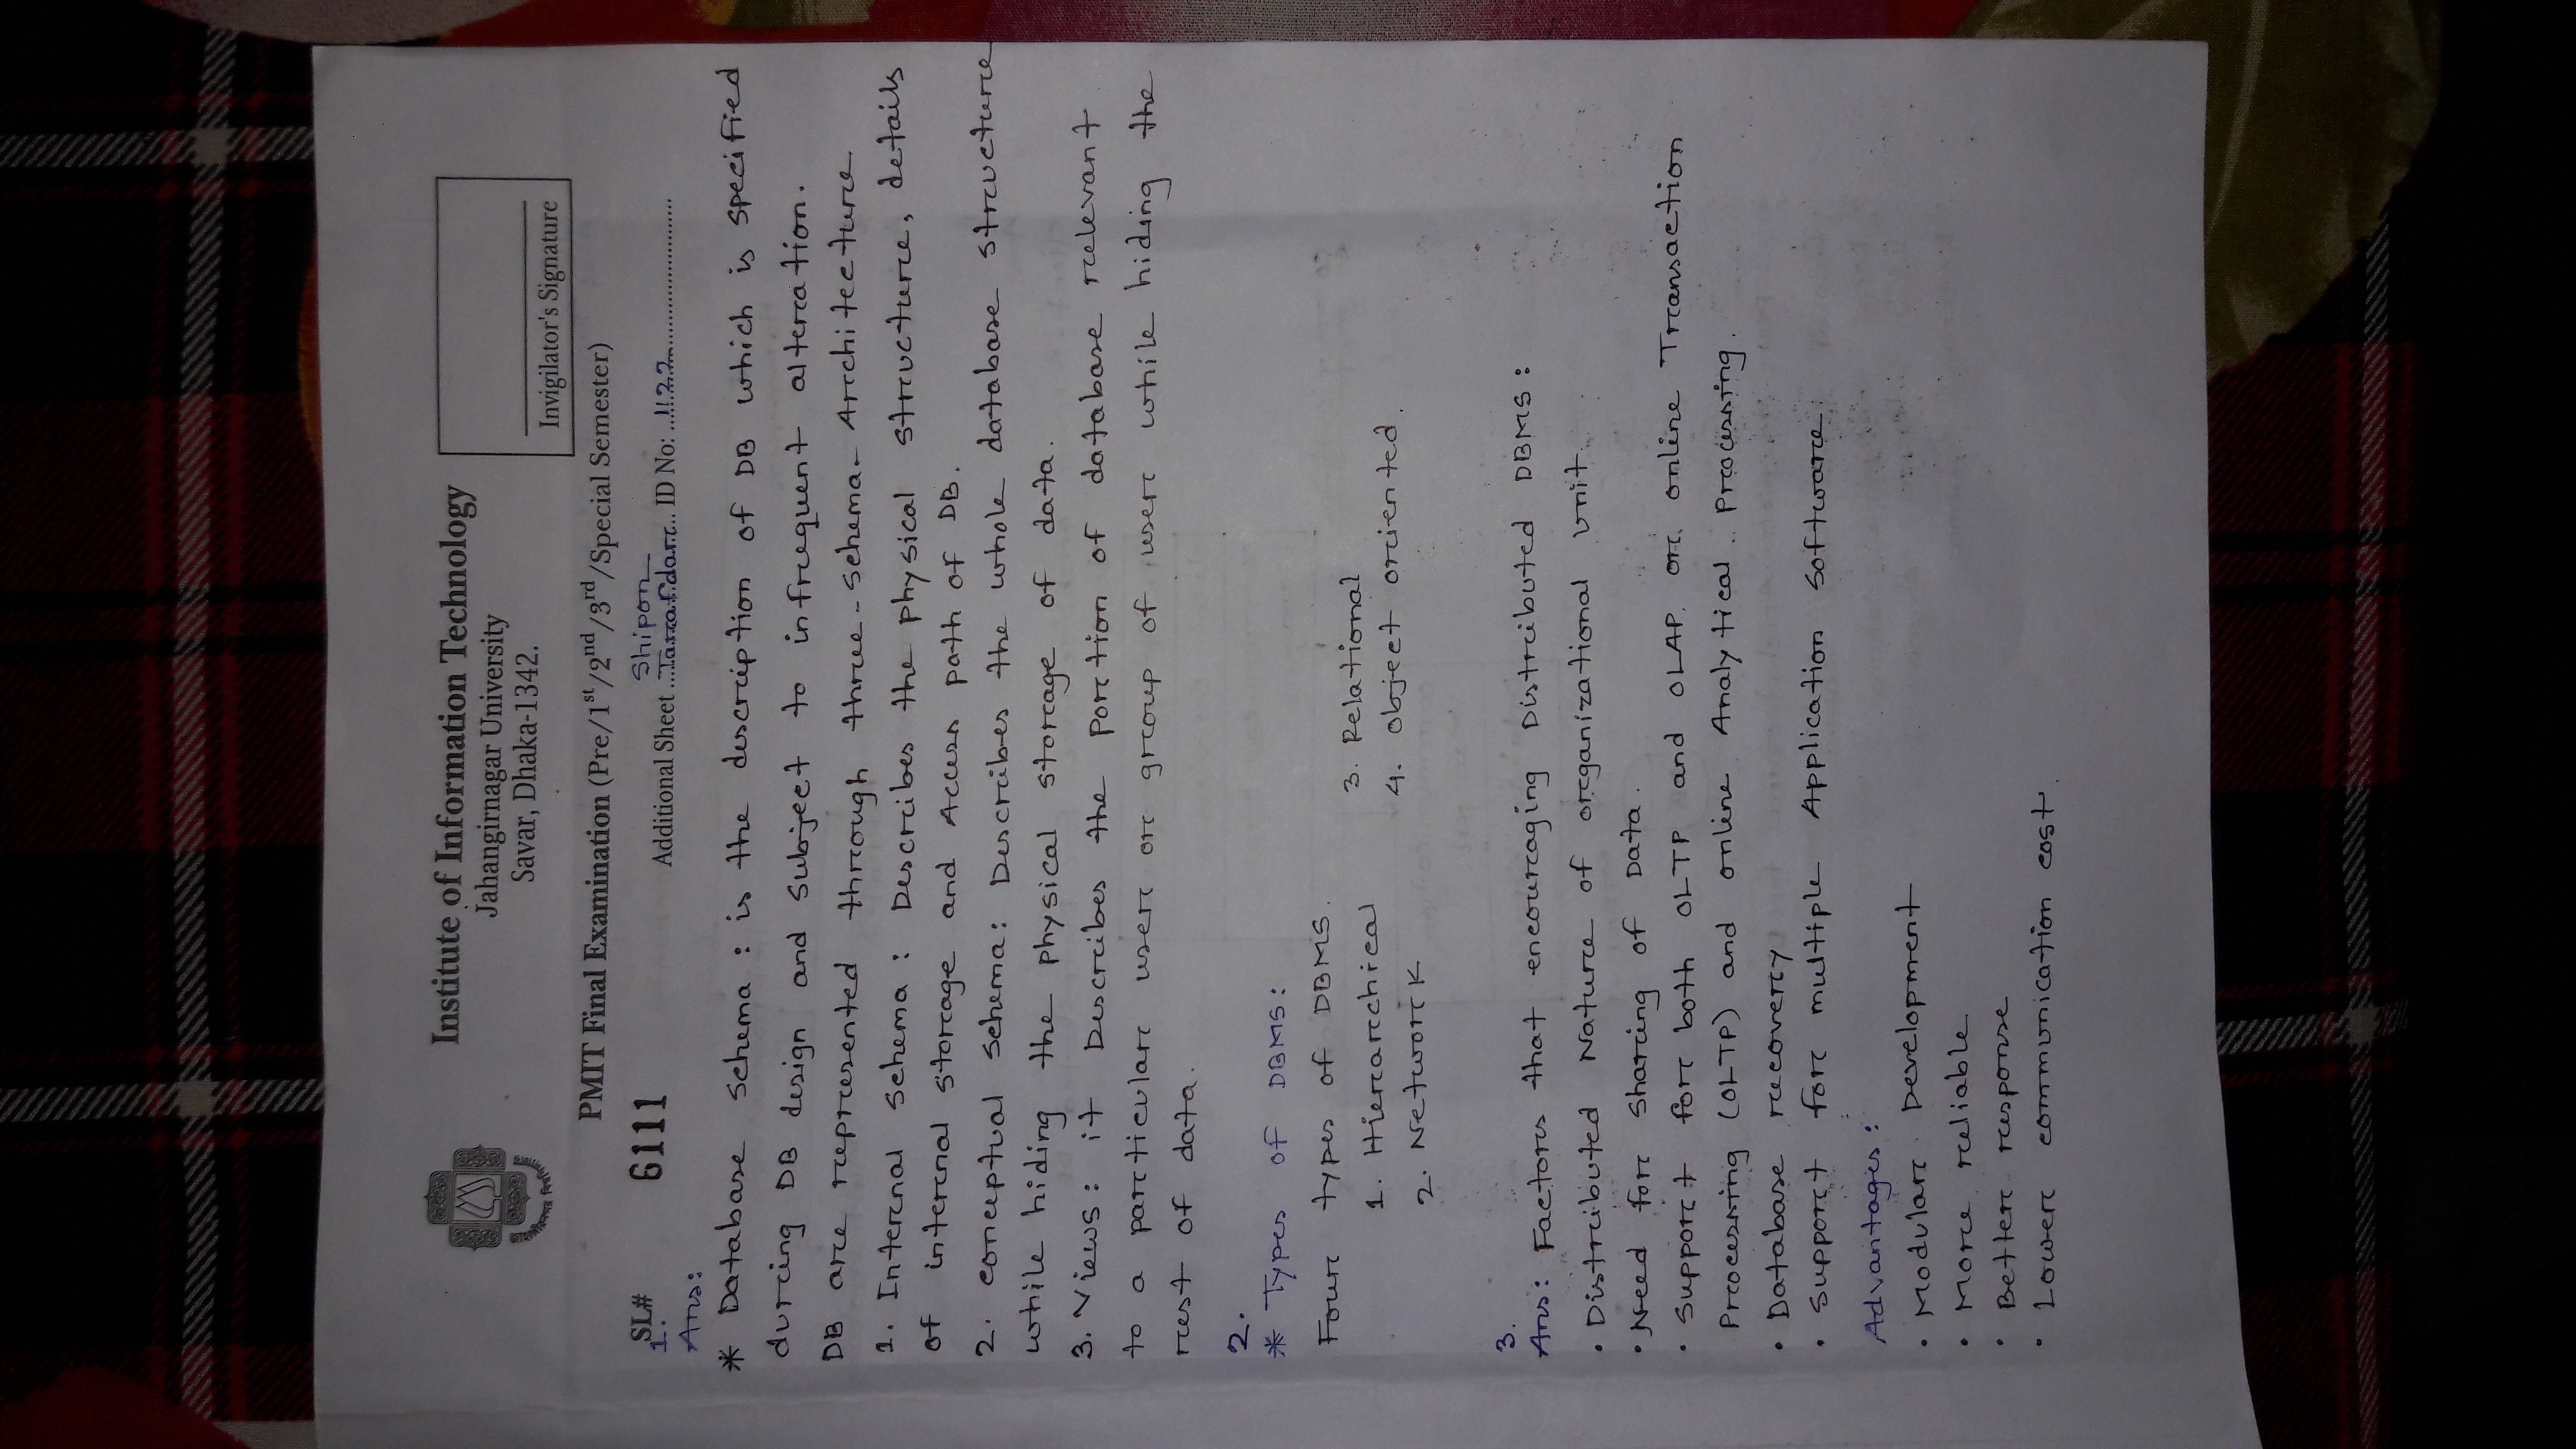 Institute of Information Technology
Jahangirnagar University
Savar, Dhaka-1342.
Invigilator's Signature
PMIT Final Examination (Pre/1st/2nd/3rd/Special Semester)
SL# 6111
Additional Sheet Shipon Tarafdar ID No: 1122
1.
Ans:
* Database schema : is the description of DB which is specified
during DB design and subject to infrequent alteration.
DB are represented through three-schema-Architecture
1. Internal schema : Describes the physical structure, details
of internal storage and Access path of DB.
2. conceptual schema: Describes the whole database structure
while hiding the physical storage of data.
3. Views : it Describes the portion of database relevant
to a particular user or group of user while hiding the
rest of data.
2.
* Types of DBMS:
Four types of DBMS.
1. Hierarchical 3. Relational
2. Network 4. object oriented.
3.
Ans: Factors that encouraging Distributed DBMS:
• Distributed Nature of organizational Unit.
• Need for sharing of Data.
• Support for both OLTP and OLAP. or online Transaction
Processing (OLTP) and online Analytical processing.
• Database recovery
• Support for multiple Application software.
Advantages:
• Modular Development
• More reliable
• Better response
• Lower communication cost.